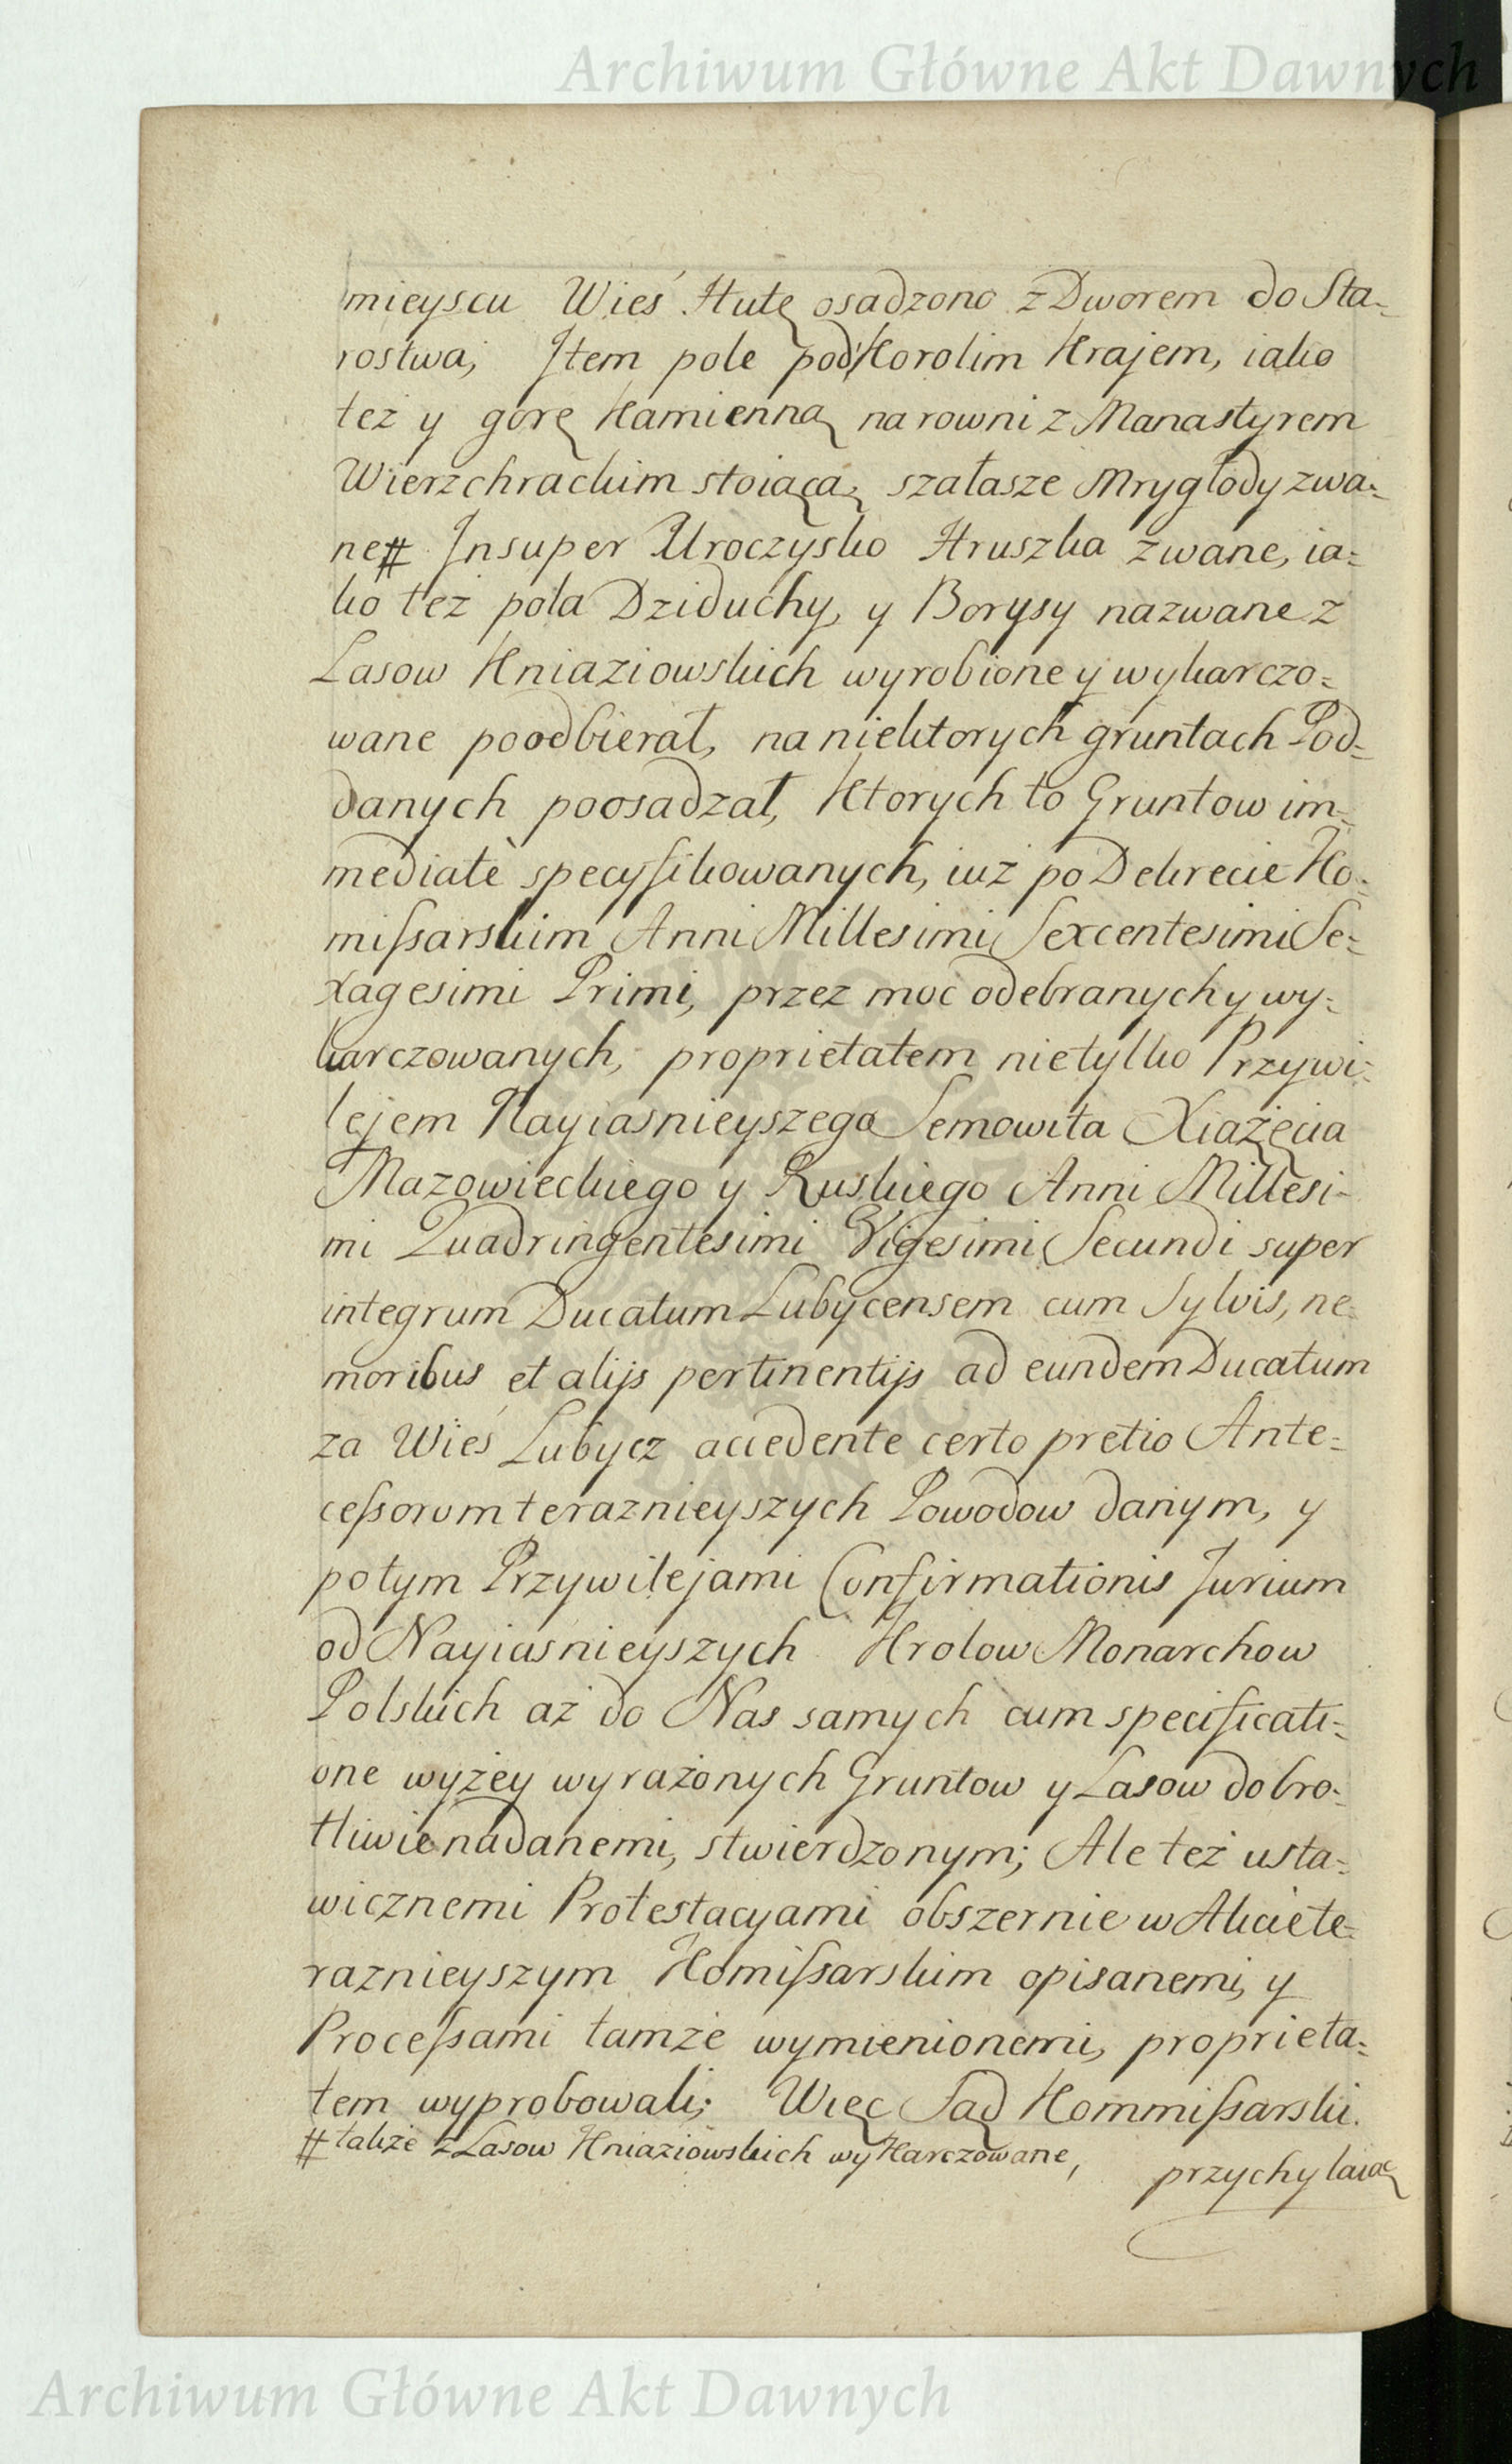 Archiwum Główne Akt Dawnych
mieyscu Wieś Hutę osadzono z Dworem do Sta=
rostwa; Item pole pod Korolim Krajem, iako
też y gorę Kamienną na rowni z Manastyrem
Wierzchrackim stoiącą, szałasze Mrygłody zwa=
ne # Insuper Uroczysko Hruszka zwane, ia=
ko też pola Dziduchy, y Borysy nazwane z
Lasow Kniaziowskich wyrobione y wykarczo=
wane poodbierał, na niektorych gruntach Pod=
danych poosadzał, Ktorych to Gruntow im=
mediatè specyfikowanych, iuż po Dekrecie Ko=
missarskim Anni Millesimi Sexcentesimi Se=
xagesimi Primi, przez moc odebranych y wy=
karczowanych, proprietatem nietylko Przywi=
lejem Nayiasnieyszego Semowita Xiążęcia
Mazowieckiego y Ruskiego Anni Millesi=
mi Quadringentesimi Vigesimi Secundi super
integrum Ducatum Lubycensem cum Sylvis, ne=
moribus et alijs pertinentijs ad eundem Ducatum
za Wieś Lubycz accedente certo pretio Ante=
cessorom teraznieyszych Powodow danym, y
potym Przywilejami Confirmationis Jurium
od Nayiasnieyszych Krolow Monarchow
Polskich aż do Nas samych cum specificati=
one wyżey wyrażonych Gruntow y Lasow dobro=
tliwie nadanemi, stwierdzonym; Ale też usta=
wicznemi Protestacyami obszernie w Akcie te=
raznieyszym Komissarskim opisanemi, y
Processami tamże wymienionemi, proprieta=
tem wyprobowali; Więc Sąd Kommissarski.
# także z Lasow Kniaziowskich wykarczowane,
przychylaiąc
Archiwum Główne Akt Dawnych